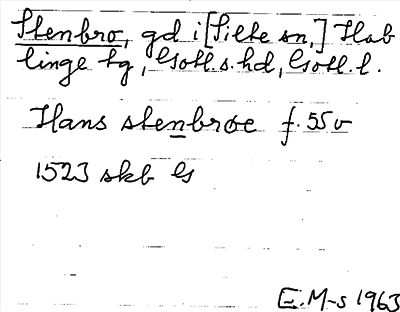 Stenbro, gd i [Silte sn,] Hab
linge tg, Gotl. s. hd, Gotl. l.
Hans stenbroe f. 55 v
1523 skb G
E. M-s 1963